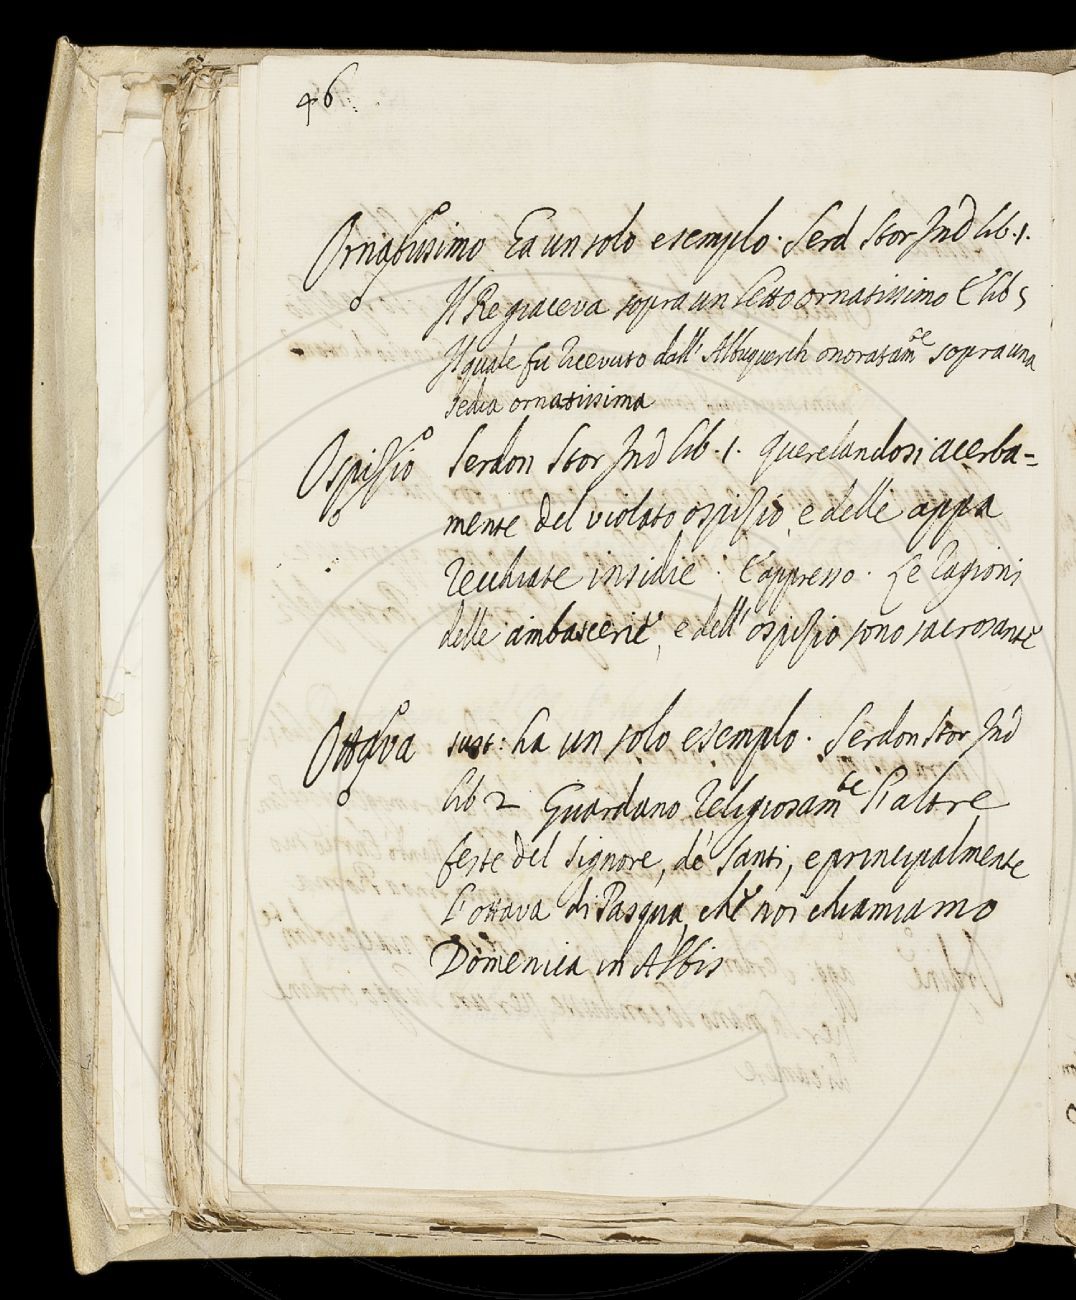 46
Ornatissimo Ea un solo esempio. Serd Stor Ind lib. 1.
Il Re giaceva sopra un letto ornatissimo E lib 5
Il quale fu ricevuto dall' Albuquerch onoratamte sopra una
sedia ornatissima
Ospizio Serdon Stor Ind lib. 1. querelandosi acerba=
mente del violato ospizio, e delle appa
recchiate insidie. E appresso. Le ragioni
delle ambascerie, e dell' ospizio sono sacrosante
Ottava sust: ha un solo esempio. Serdon Stor Ind
lib 2 Guardano religiosamte l'altre
feste del Signore, de' Santi, e principalmente
l'ottava di Pasqua, che noi chiamiamo
Domenica in Albis